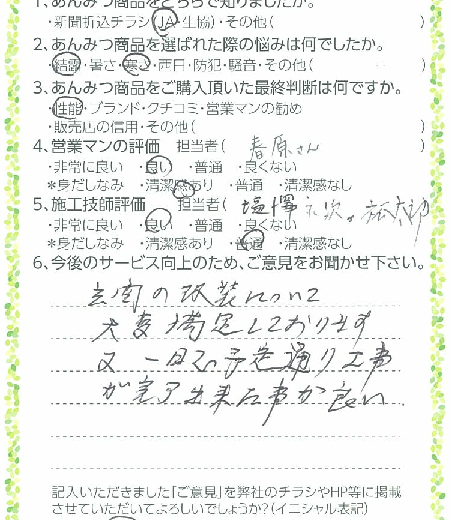 1、あんみつ商品をどちらで知りましたか。
・新聞折込チラシ・JA・生協)・その他( )
2、あんみつ商品を選ばれた際の悩みは何でしたか。
・結露・暑さ・寒さ・西日・防犯・騒音・その他( )
3、あんみつ商品をご購入頂いた最終判断は何ですか。
・性能・ブランド・クチコミ・営業マンの勧め
・販売店の信用・その他( )
4、営業マンの評価 担当者( 春原さん )
・非常に良い ・良い ・普通 ・良くない
*身だしなみ ・清潔感あり ・普通 ・清潔感なし
5、施工技師評価 担当者(
・非常に良い ・良い ・普通 ・良くない
*身だしなみ ・清潔感あり ・普通 ・清潔感なし
6、今後のサービス向上のため、ご意見をお聞かせ下さい。
玄関の改装について
大変満足しております
又 一日で予定通り工事
が完了出来た事が良い
記入いただきました「ご意見」を弊社のチラシやHP等に掲載
させていただいてよろしいでしょうか?(イニシャル表記)